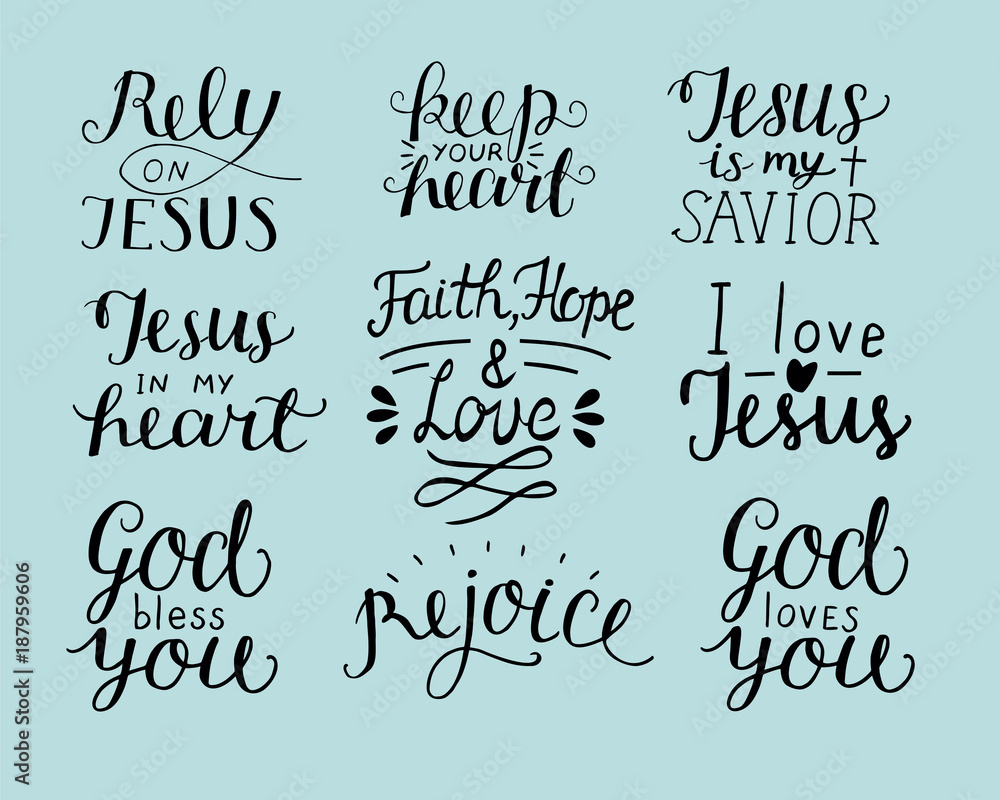 Rely
ON
JESUS
keep
YOUR
heart
Jesus
is my
SAVIOR
Jesus
IN MY
heart
Faith, Hope
&
Love
I love
Jesus
God
bless
you
Rejoice
God
LOVES
you
Adobe Stock | #187959606